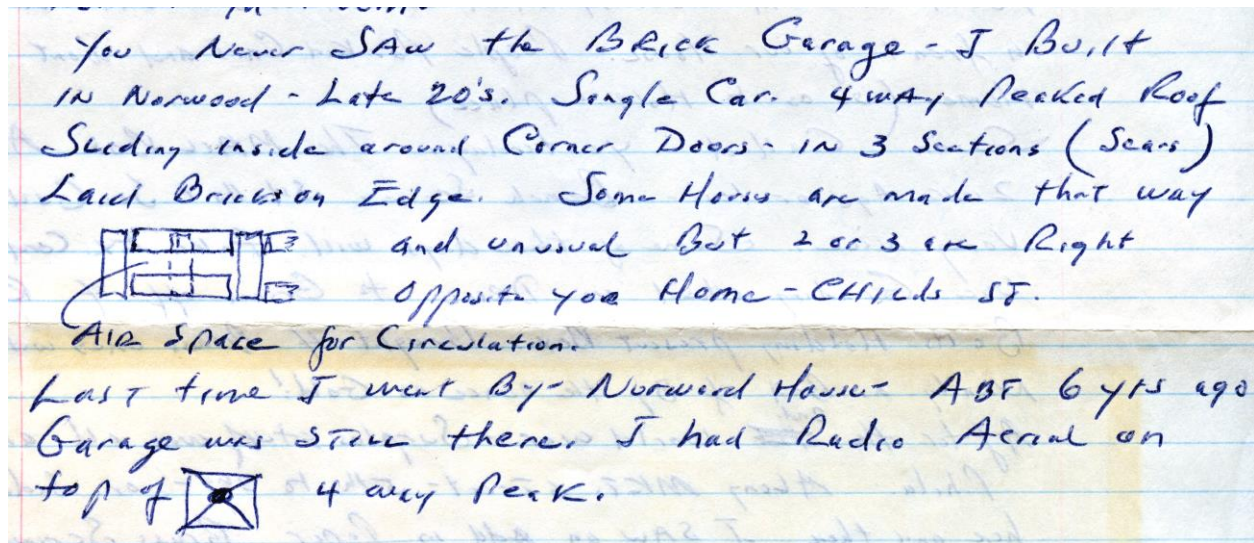 You Never SAw the BRick Garage - I Built
IN Norwood - Late 20's. Single Car. 4 wAy Peaked Roof
Sliding inside around Corner Doors - IN 3 Sections (Sears)
Laid Bricks on Edge. Some Homes are made that way
and unusual But 2 or 3 are Right
Opposite your Home - CHilds ST.
AIR Space for Circulation.
LAST time I went By - Norwood House - ABT 6 yrs ago
Garage was STILL there. I had Radio Aerial on
top of 4 way Peak.